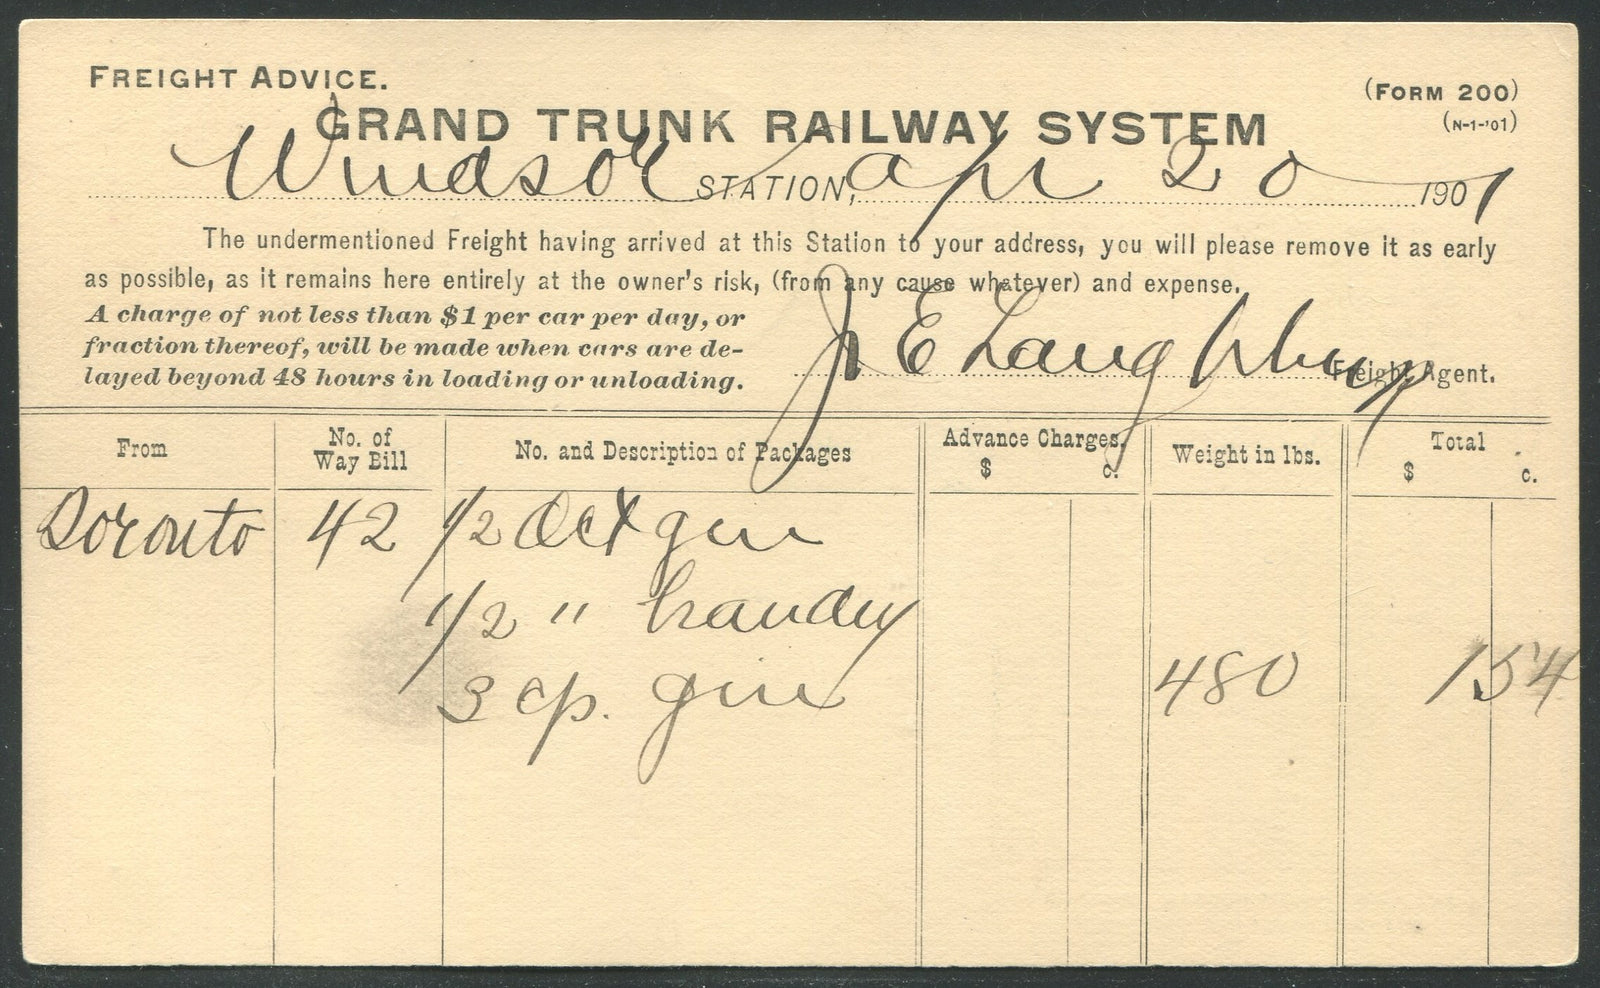 FREIGHT ADVICE.
(FORM 200)
GRAND TRUNK RAILWAY SYSTEM
(N-1-'01)
Windsor STATION, Apr 20 1901
The undermentioned Freight having arrived at this Station to your address, you will please remove it as early
as possible, as it remains here entirely at the owner's risk, (from any cause whatever) and expense.
A charge of not less than $1 per car per day, or
fraction thereof, will be made when cars are de-
layed beyond 48 hours in loading or unloading.
J E Freight Agent.
From No. of Way Bill No. and Description of Packages Advance Charges. $ c. Weight in lbs. Total $ c.
Toronto 42 1/2 Oct gin
1/2 " brandy
3 cp. gin 480 154